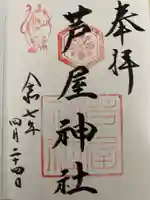 奉拝
芦屋神社
令和七年
四月二十四日